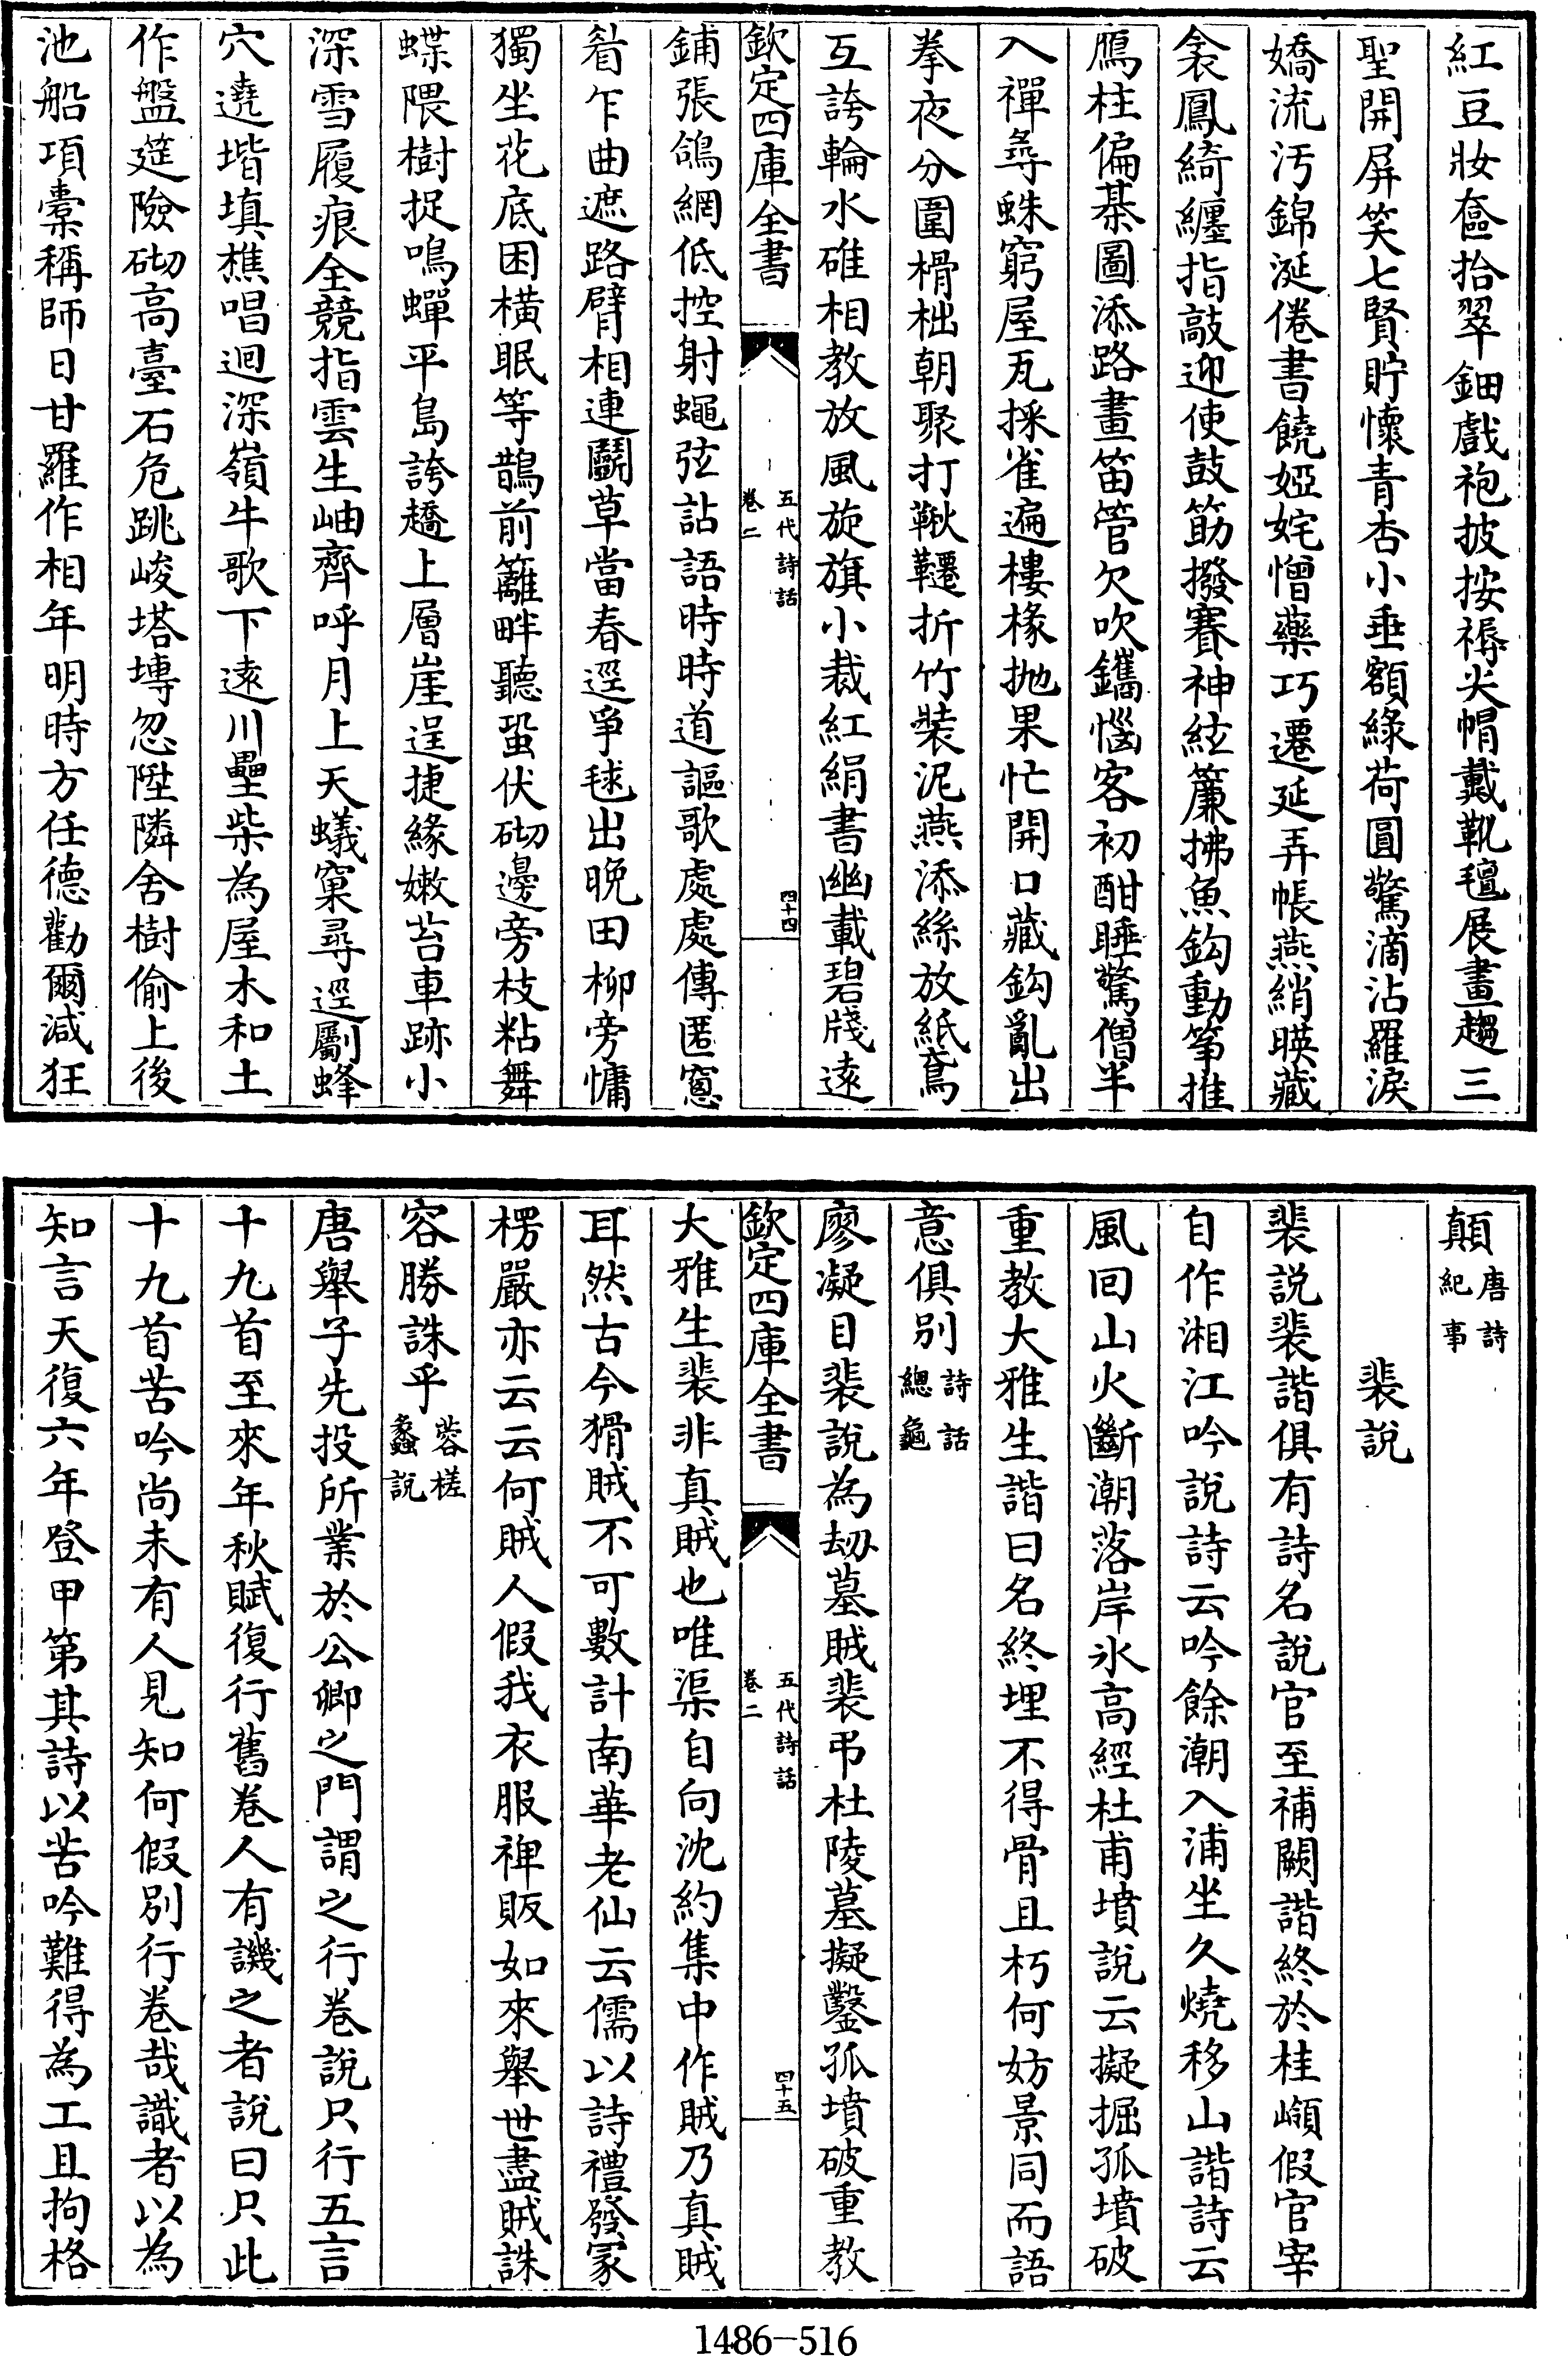 紅豆妝奩拾翠鈿戲袍披按褥尖帽戴靴氊展畫趨三
聖開屏笑七賢貯懷青杏小垂額綠荷圓驚滴沾羅淚
嬌流汚錦涎倦書饒婭姹憎藥巧遷延弄帳燕綃暎藏
衾鳳綺纏指敲迎使鼓筯撥賽神絃簾拂魚鈎動筝推
鴈柱偏棊圖添路畫笛管欠吹鑴惱客初酣睡驚僧半
入禪尋蛛窮屋瓦採雀遍樓椽抛果忙開口藏鈎亂出
拳夜分圍榾柮朝聚打鞦韆折竹裝泥燕添絲放紙鳶
互誇輪水碓相教放風旋旗小裁紅絹書幽載碧牋遠
欽定四庫全書
五代詩話
卷二
四十四
鋪張鴿網低控射蠅弦詀語時時道謳歌處處傳匿窻
眉乍曲遮路臂相連鬭草當春逕爭毬出晚田柳旁慵
獨坐花底困橫眠等鵲前籬畔聽蛩伏砌邊旁枝粘舞
蝶隈樹捉鳴蟬平島誇趫上層崖逞捷緣嫩苔車跡小
深雪履痕全競指雲生岫齊呼月上天蟻窠尋逕斸蜂
穴遶堦填樵唱迴深嶺牛歌下遠川壘柴為屋木和土
作盤筵險砌高臺石危跳峻塔塼忽陞隣舍樹偷上後
池船項橐稱師日甘羅作相年明時方任德勸爾減狂
顛唐詩
紀事
裴說
裴說裴諧俱有詩名說官至補闕諧終於桂嶺假官宰
自作湘江吟說詩云吟餘潮入浦坐久燒移山諧詩云
風回山火斷潮落岸氷高經杜甫墳說云擬掘孤墳破
重教大雅生諧曰名終埋不得骨且朽何妨景同而語
意俱別詩話
總龜
廖凝目裴說為刼墓賊裴弔杜陵墓擬鑿孤墳破重教
欽定四庫全書
五代詩話
卷二
四十五
大雅生裴非真賊也唯渠自向沈約集中作賊乃真賊
耳然古今猾賊不可數計南華老仙云儒以詩禮發冢
楞嚴亦云云何賊人假我衣服裨販如來舉世盡賊誅
容勝誅乎蓉槎
蠡說
唐舉子先投所業於公卿之門謂之行卷說只行五言
十九首至來年秋賦復行舊卷人有譏之者說曰只此
十九首苦吟尚未有人見知何假別行卷哉識者以為
知言天復六年登甲第其詩以苦吟難得為工且拘格
1486-516